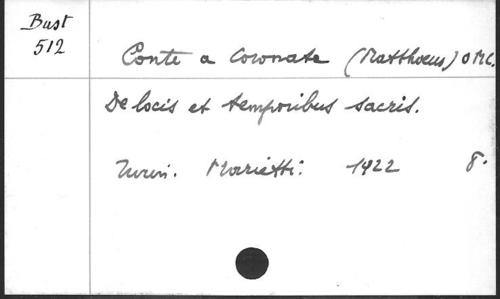 Bust
512
Conte a Coronata (Matthoeus) OMC.
De locis et temporibus sacris.
Turin. Marietti. 1922 8.